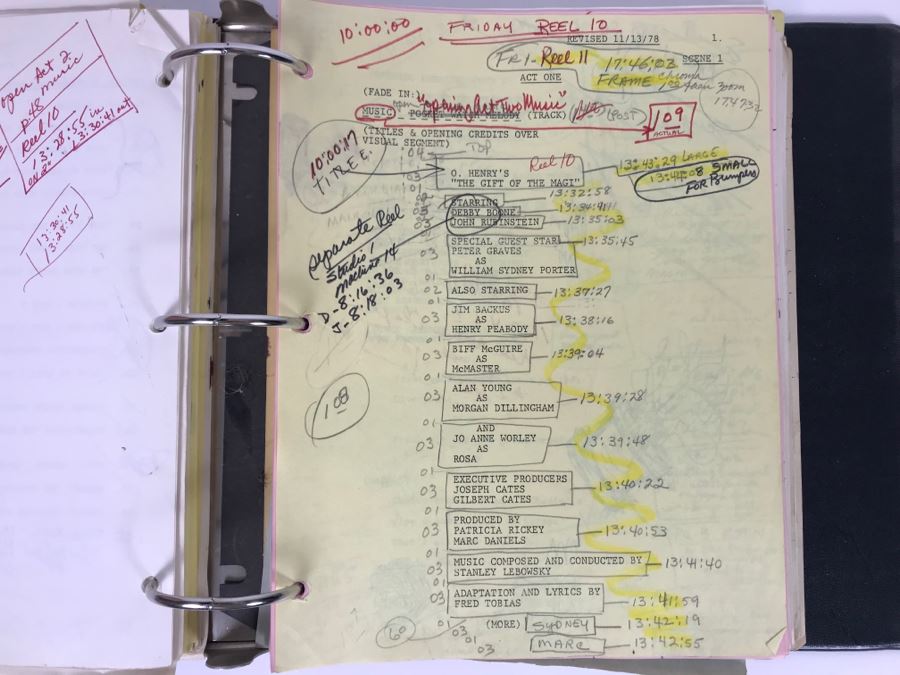 open Act 2
music
P 48
Reel 10
13:28:55 in
13:30:41 out
13:30:41
13:28:55
10:00:00 FRIDAY REEL 10
REVISED 11/13/78 1.
FRI- Reel 11 17:46:03 SCENE 1
FRAME
ACT ONE
(FADE IN:
"opening Act Two Music"
MUSIC: POCKET WATCH MELODY (TRACK) (POST) 109
ACTUAL
(TITLES & OPENING CREDITS OVER
VISUAL SEGMENT)
10:00:17
TITLE
:04 TOP
Reel 10
13:43:29 LARGE
03 O. HENRY'S
"THE GIFT OF THE MAGI"
13:44:08 SMALL
FOR Bumpers
01
STARRING 13:32:58
DEBBY BOONE
JOHN RUBINSTEIN 13:35:03
Separate Reel
Studio 1
Machine 14
D-8:16:36
J-8:18:03
03 SPECIAL GUEST STAR 13:35:45
PETER GRAVES
AS
WILLIAM SYDNEY PORTER
01
02 ALSO STARRING 13:37:27
01
03 JIM BACKUS 13:38:16
AS
HENRY PEABODY
01
03 BIFF McGUIRE 13:39:04
AS
McMASTER
01
03 ALAN YOUNG 13:39:28
AS
MORGAN DILLINGHAM
108
01
AND
03 JO ANNE WORLEY 13:39:48
AS
ROSA
01
03 EXECUTIVE PRODUCERS 13:40:22
JOSEPH CATES
GILBERT CATES
01
03 PRODUCED BY 13:40:53
PATRICIA RICKEY
MARC DANIELS
01
03 MUSIC COMPOSED AND CONDUCTED BY 13:41:40
STANLEY LEBOWSKY
01
03 ADAPTATION AND LYRICS BY 13:41:59
FRED TOBIAS
01
60 03 (MORE) SYDNEY 13:42:19
01
03 MARC 13:42:55